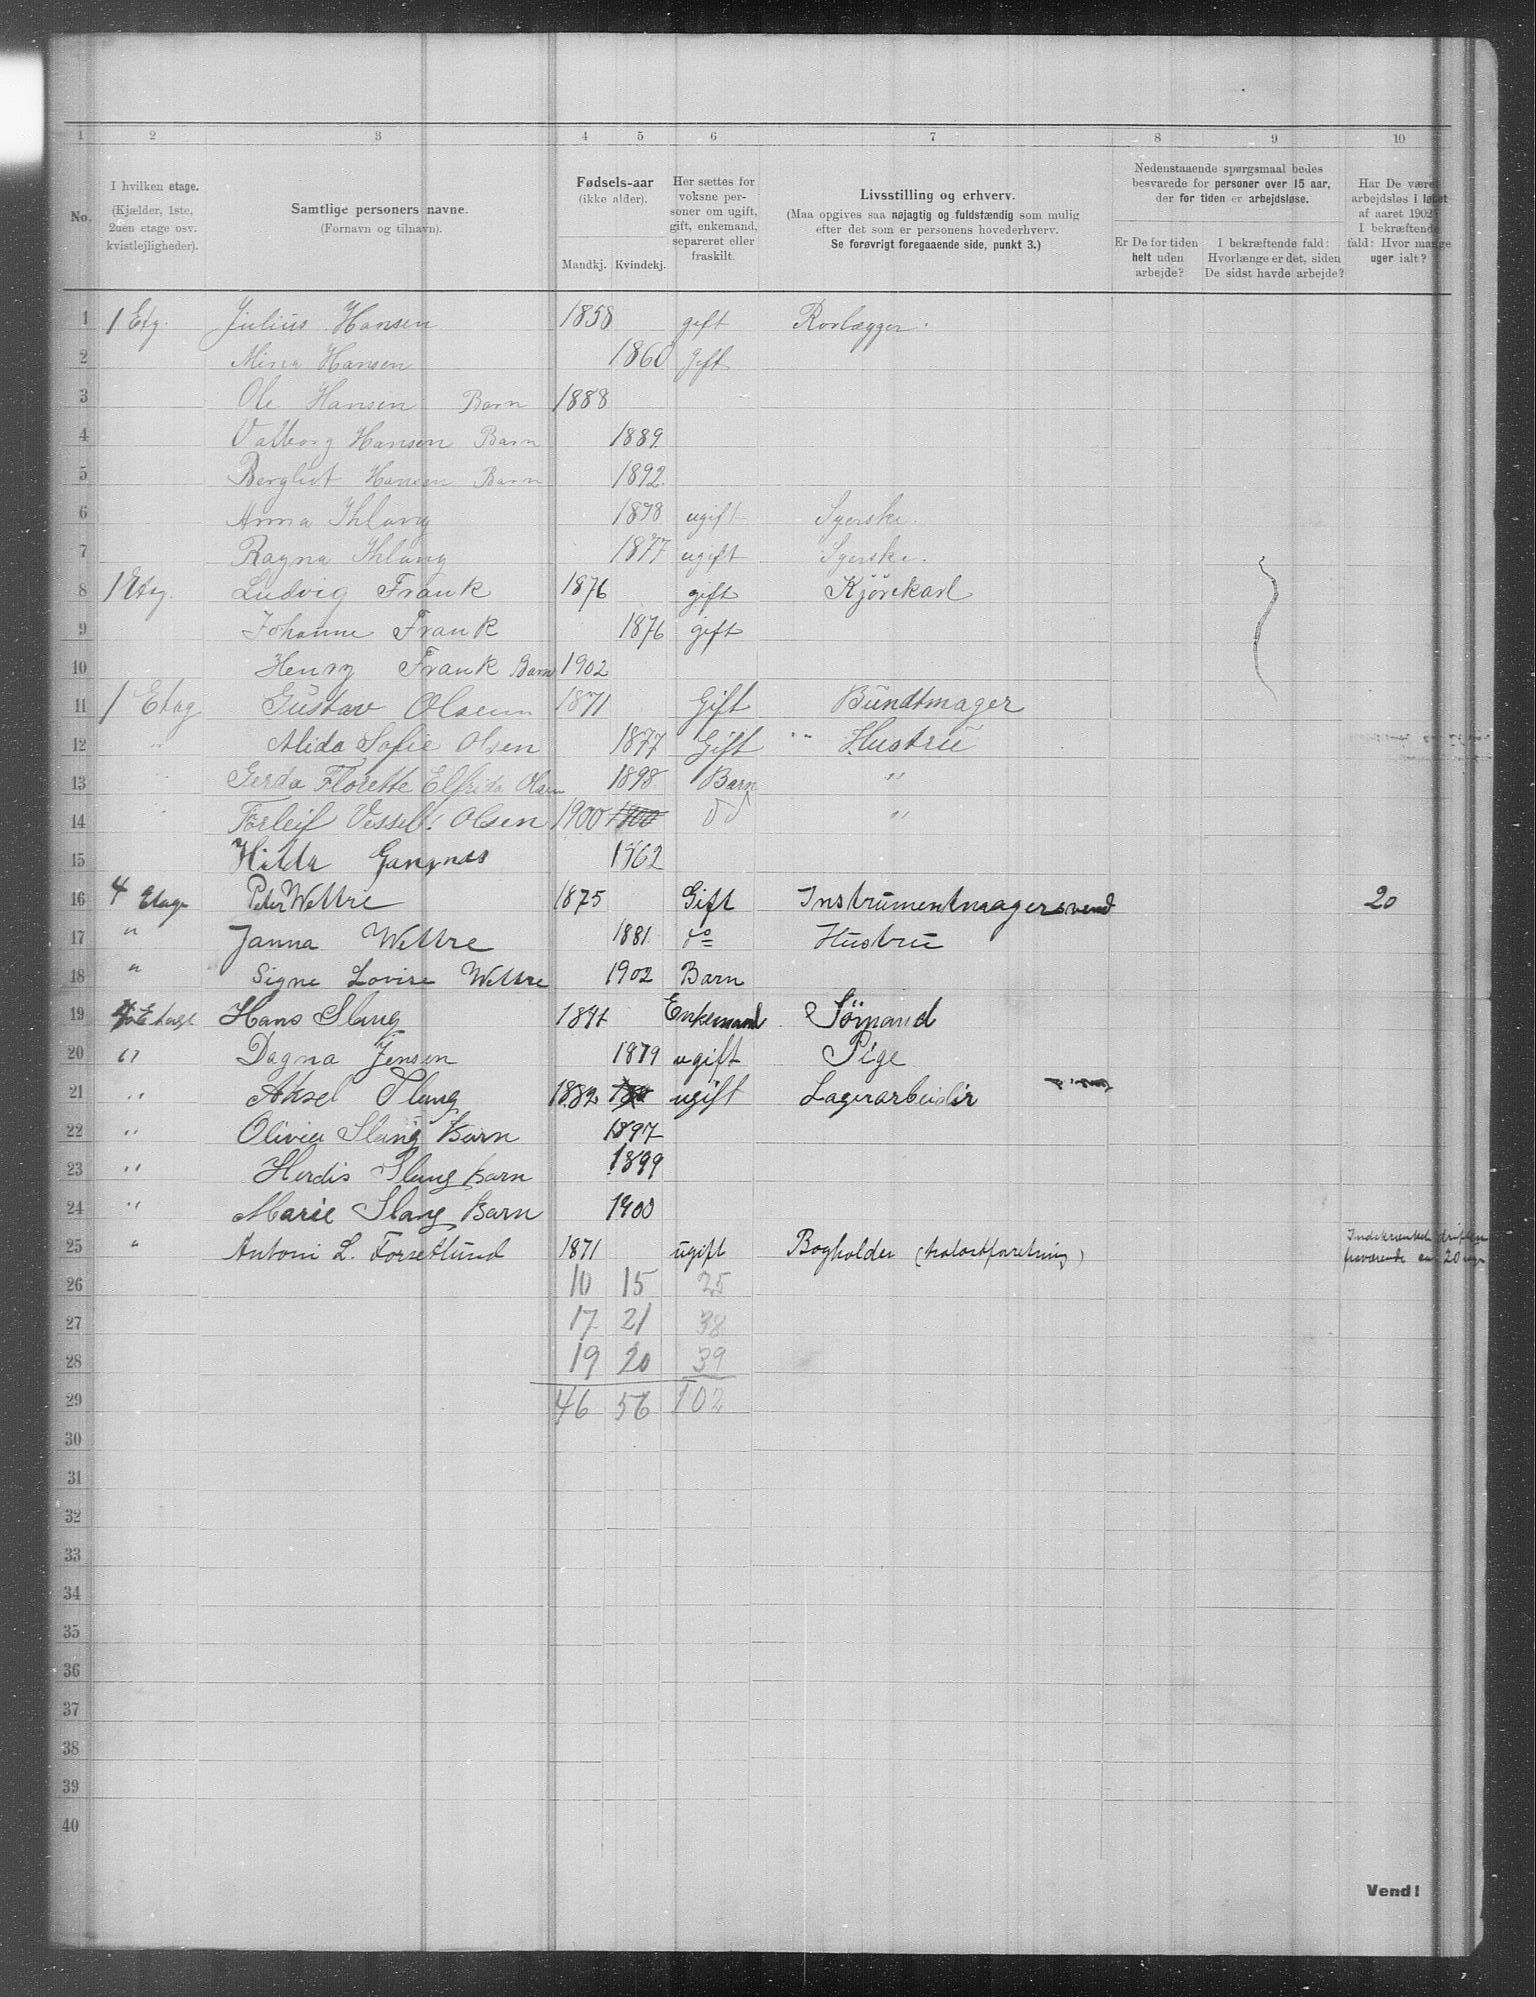 1 2 3 4 5 6 7 8 9 10
No.
I hvilken etage.
(Kjælder, 1ste,
2den etage osv.
kvistlejligheder).
Samtlige personers navne.
(Fornavn og tilnavn).
Fødsels-aar
(ikke alder).
Mandkj. Kvindekj.
Her sættes for
voksne per-
soner om ugift,
gift, enkemand,
separeret eller
fraskilt.
Livsstilling og erhverv.
(Maa opgives saa nøjagtig og fuldstændig som mulig
efter det som er personens hovederhverv.
Se forøvrigt foregaaende side, punkt 3.)
Nedenstaaende spørgsmaal bedes
besvarede for personer over 15 aar,
der for tiden er arbejdsløse.
Er De for tiden
helt uden
arbejde?
I bekræftende fald:
Hvorlænge er det, siden
De sidst havde arbejde?
Har De været
arbejdsløs i løbet
af aaret 1902?
I bekræftende
fald: Hvor mange
uger ialt?
1 1 Etg. Julius Hansen 1858 gift Rørlægger.
2 Mina Hansen 1860 gift
3 Ole Hansen Barn 1888
4 Valborg Hansen Barn 1889
5 Bergliot Hansen Barn 1892
6 Anna Ihlang ugift Syerske.
7 Ragna Ihlang 1877 ugift Syerske.
8 1 Etg. Ludvig Frank 1876 gift Kjörekarl
9 Johanne Frank 1876 gift
10 Henry Frank Barn 1902
11 1 Etag Gustav Olsen 1871 Gift Bundtmager
12 " Alida Sofie Olsen 1877 Gift " Hustru
13 Gerda Florette Elfrida Olsen 1898 Barn "
14 Torleif Vessel. Olsen 1900 1900 do "
15 Hilda Gangnes
16 4 Etage Peter Wettre 1875 Gift Instrumentmagersvend 20
17 " Janna Wettre 1881 do Hustru
18 " Signe Lovise Wettre 1902 Barn
19 4 Etage Hans Slang Enkemand Sömand
20 " Dagna Jensen 1879 ugift Pige
21 " Aksel Slang 1882 ugift Lagerarbeider
22 " Olivia Slang Barn 1897
23 " Herdis Slang Barn 1899
24 " Marie Slang Barn 1900
25 " Antoni L. Forsetlund 1871 ugift Bogholder
20
26 10 15 25
27 17 21 38
28 19 20 39
29 46 56 102
30
31
32
33
34
35
36
37
38
39
40
Vend!